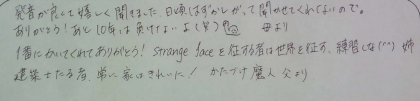 発音が良くて嬉しく聞きました。日頃はずかしがって聞かせてくれないので。
ありがとう!あと10年は負けないよ(笑) 母より
1番にかいてくれてありがとう! strange faceを征する者は世界を征す。練習しな(^^) 姉
建築士たる者、常に家はきれいに! かたづけ魔人 父より